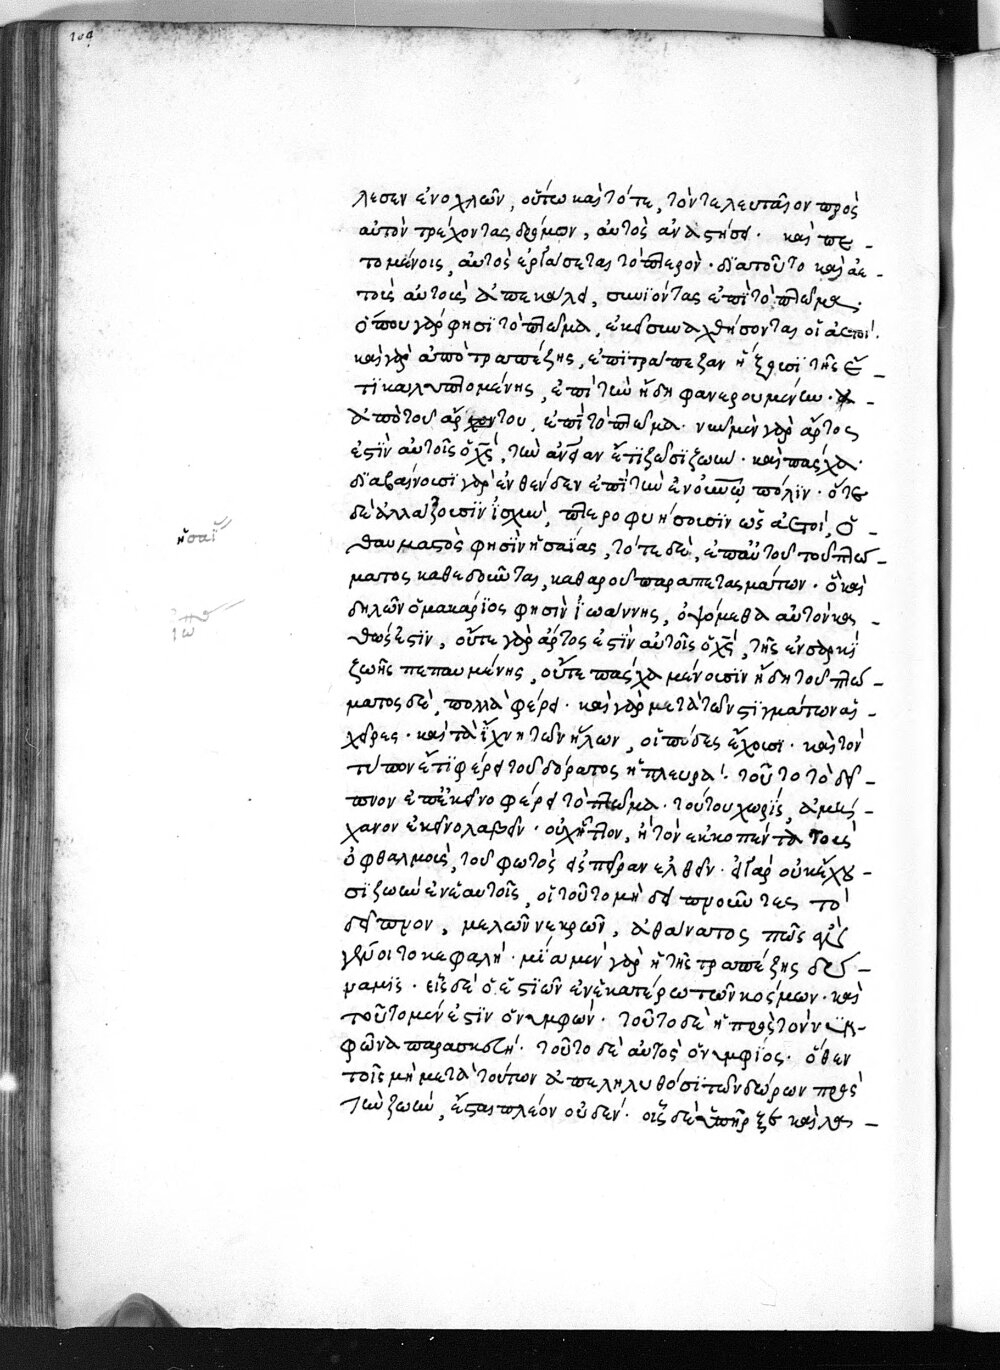 λεσεν ἐνοχλῶν, οὕτω καὶ τότε, τὸν τελευταῖον πρὸς
αὐτὸν τρέχοντας δρόμον, αὐτὸς ἀναστήσει. καὶ πε_
τομένοις, αὐτὸς ἐργάσεται τὸ πτερὸν. διατοῦτο καὶ ἀε_
τοὺς αὐτοὺς ἀπεκάλει, συνιόντας ἐπὶ τὸ πτῶμα.
ὅπου γάρ φησὶ τὸ πτῶμα, ἐκεῖ συναχθήσονται οἱ ἀετοί.
καὶ γὰρ ἀπὸ τραπέζης, ἐπὶ τράπεζαν ἥξουσι τῆς ἔ_
τι καλυπτομένης, ἐπὶ τὴν ἤδη φανερουμένην.
ἀπὸ τοῦ ἄρτου, ἐπὶ τὸ πτῶμα. νῦν μὲν γὰρ ἄρτος
ἐστὶν αὐτοῖς ὁ χς, τὴν ἀνίαν ἔτι ζῶσι ζωὴν. καὶ πάσχα.
διαβαίνουσι γὰρ ἐνθένδεν ἐπὶ τὴν ἐν οὐνῶ πόλιν. ὅτε
δὲ ἀλλάξουσιν ἰσχὺν, πτεροφυήσουσιν ὡς ἀετοί, ὁ_
θαυμαστὸς φησὶν ἠσαΐας, τότε δὲ, ἐπ' αὐτοῦ τοῦ πτώ_
ματος καθεδοῦνται, καθαροῦ παραπετασμάτων. ὃ καὶ
δηλῶν ὁ μακάριος φησὶν ἰωάννης, ὀψόμεθα αὐτὸν κα_
θώς ἐστιν, οὔτε γὰρ ἄρτος ἐστὶν αὐτοῖς ὁ χς, τῆς ἐν σαρκὶ
ζωῆς πεπαυμένης, οὔτε πάσχα μένουσιν ἤδη τοῦ πτώ_
ματος δὲ, πολλὰ φέρει. καὶ γὰρ μετὰ τῶν στιγμάτων αἱ_
χεῖρες. καὶ τὰ ἴχνη τῶν ἥλων, οἱ πόδες ἔχουσι. καὶ τὸν
τύπον ἔτι φέρει τοῦ δόρατος ἡ πλευρά. τοῦτο τὸ δεῖ_
πνον ἐπ' ἐκεῖνο φέρει τὸ πτῶμα. τούτου χωρὶς, ἀμή_
χανον ἐκεῖνο λαβεῖν. οὐχ ἧττον, ἢ τὸν ἐκκοπέντα τοὺς
ὀφθαλμοὺς, τοῦ φωτὸς εἰς πεῖραν ἐλθεῖν. εἰ γὰρ οὐκ ἔχου_
σι ζωὴν ἐν ἑαυτοῖς, οἱ τοῦτο μὴ δειπνοῦντες τὸ
δεῖπνον, μελῶν νεκρῶν, ἀθάνατος πῶς ἂν
γένοιτο κεφαλή. μία μὲν γὰρ ἡ τῆς τραπέζης δύ_
ναμις. εἷς δὲ ὁ ἑστιῶν ἐν ἑκατέρω τῶν κόσμων. καὶ
τοῦτο μέν ἐστιν ὁ νυμφών. τοῦτο δὲ ἡ πρὸς τὸν νυμ_
φῶνα παρασκευή. τοῦτο δὲ αὐτὸς ὁ νυμφίος. ὅθεν
τοῖς μὴ μετὰ τούτων ἀπεληλυθόσι τῶν δώρων πρὸς
τὴν ζωὴν, ἔσται πλέον οὐδέν. οἷς δὲ ὑπῆρξε καὶ λα_
ἠσαΐ
ἰω